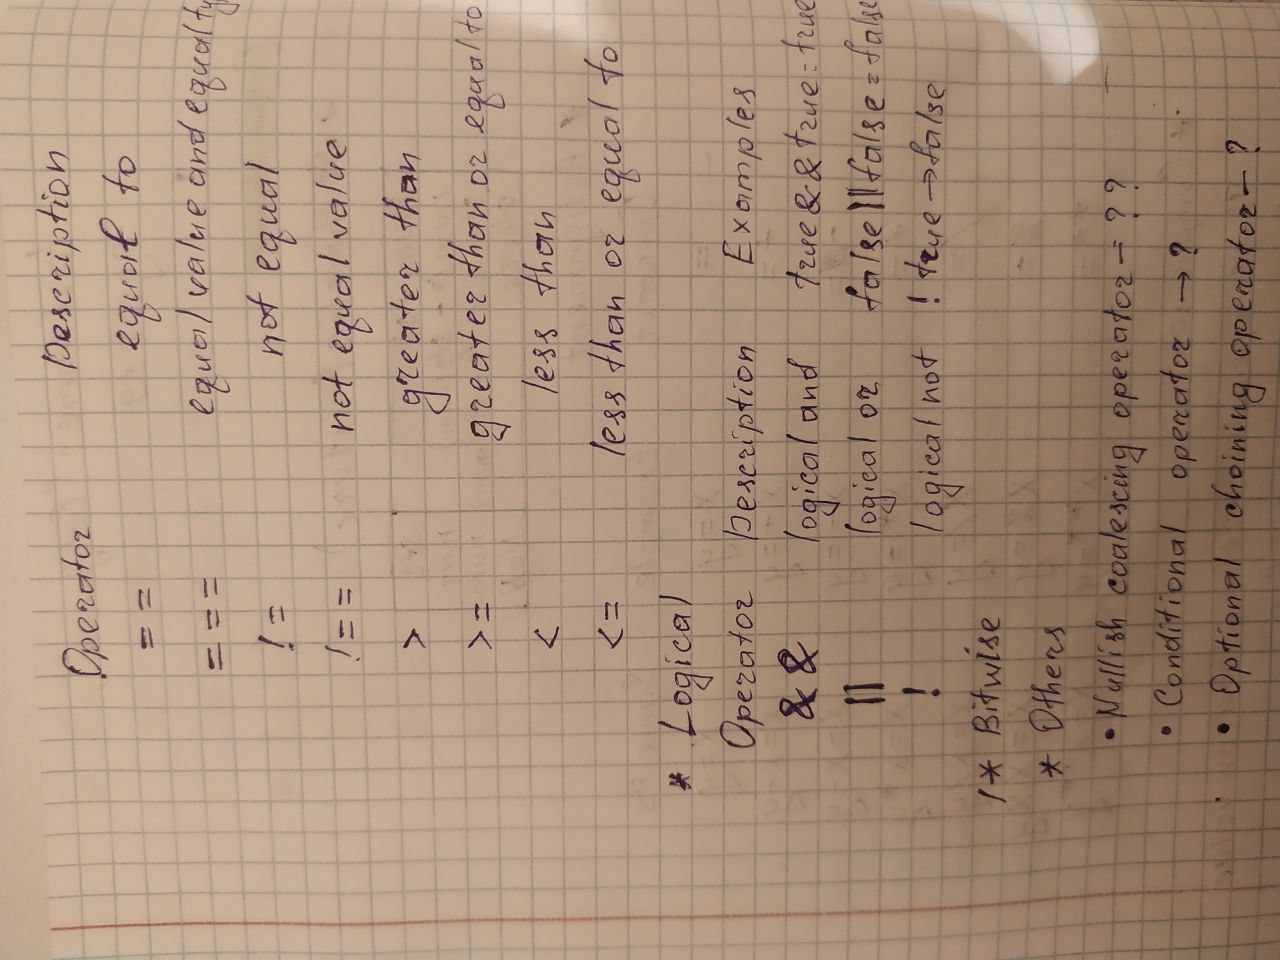 Operator Description
== equal to
=== equal value and equal ty
!= not equal
!== not equal value
> greater than
>= greater than or equal to
< less than
<= less than or equal to
* Logical
Operator Description Examples
&& logical and true&&true=true
|| logical or false||false=false
! logical not !true→false
* Bitwise
* Others
• Nullish coalescing operator - ??
• Conditional operator → ?
• Optional choining operator - ?